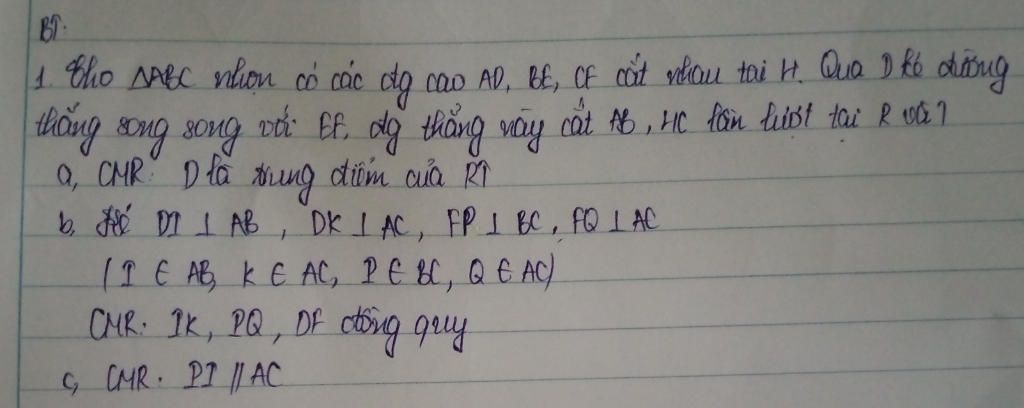 BT.
1. Cho ΔABC nhọn có các đg cao AD, BE, CF cắt nhau tại H. Qua D kẻ đường
thẳng song song với EF, đg thẳng này cắt AB, HC lần lượt tại R và T
a, CMR: D là trung điểm của RT
b, Kẻ DI ⊥ AB, DK ⊥ AC, FP ⊥ BC, FQ ⊥ AC
(I ∈ AB, K ∈ AC, P ∈ BC, Q ∈ AC)
CMR: IK, PQ, DF đồng quy
c, CMR: PI // AC